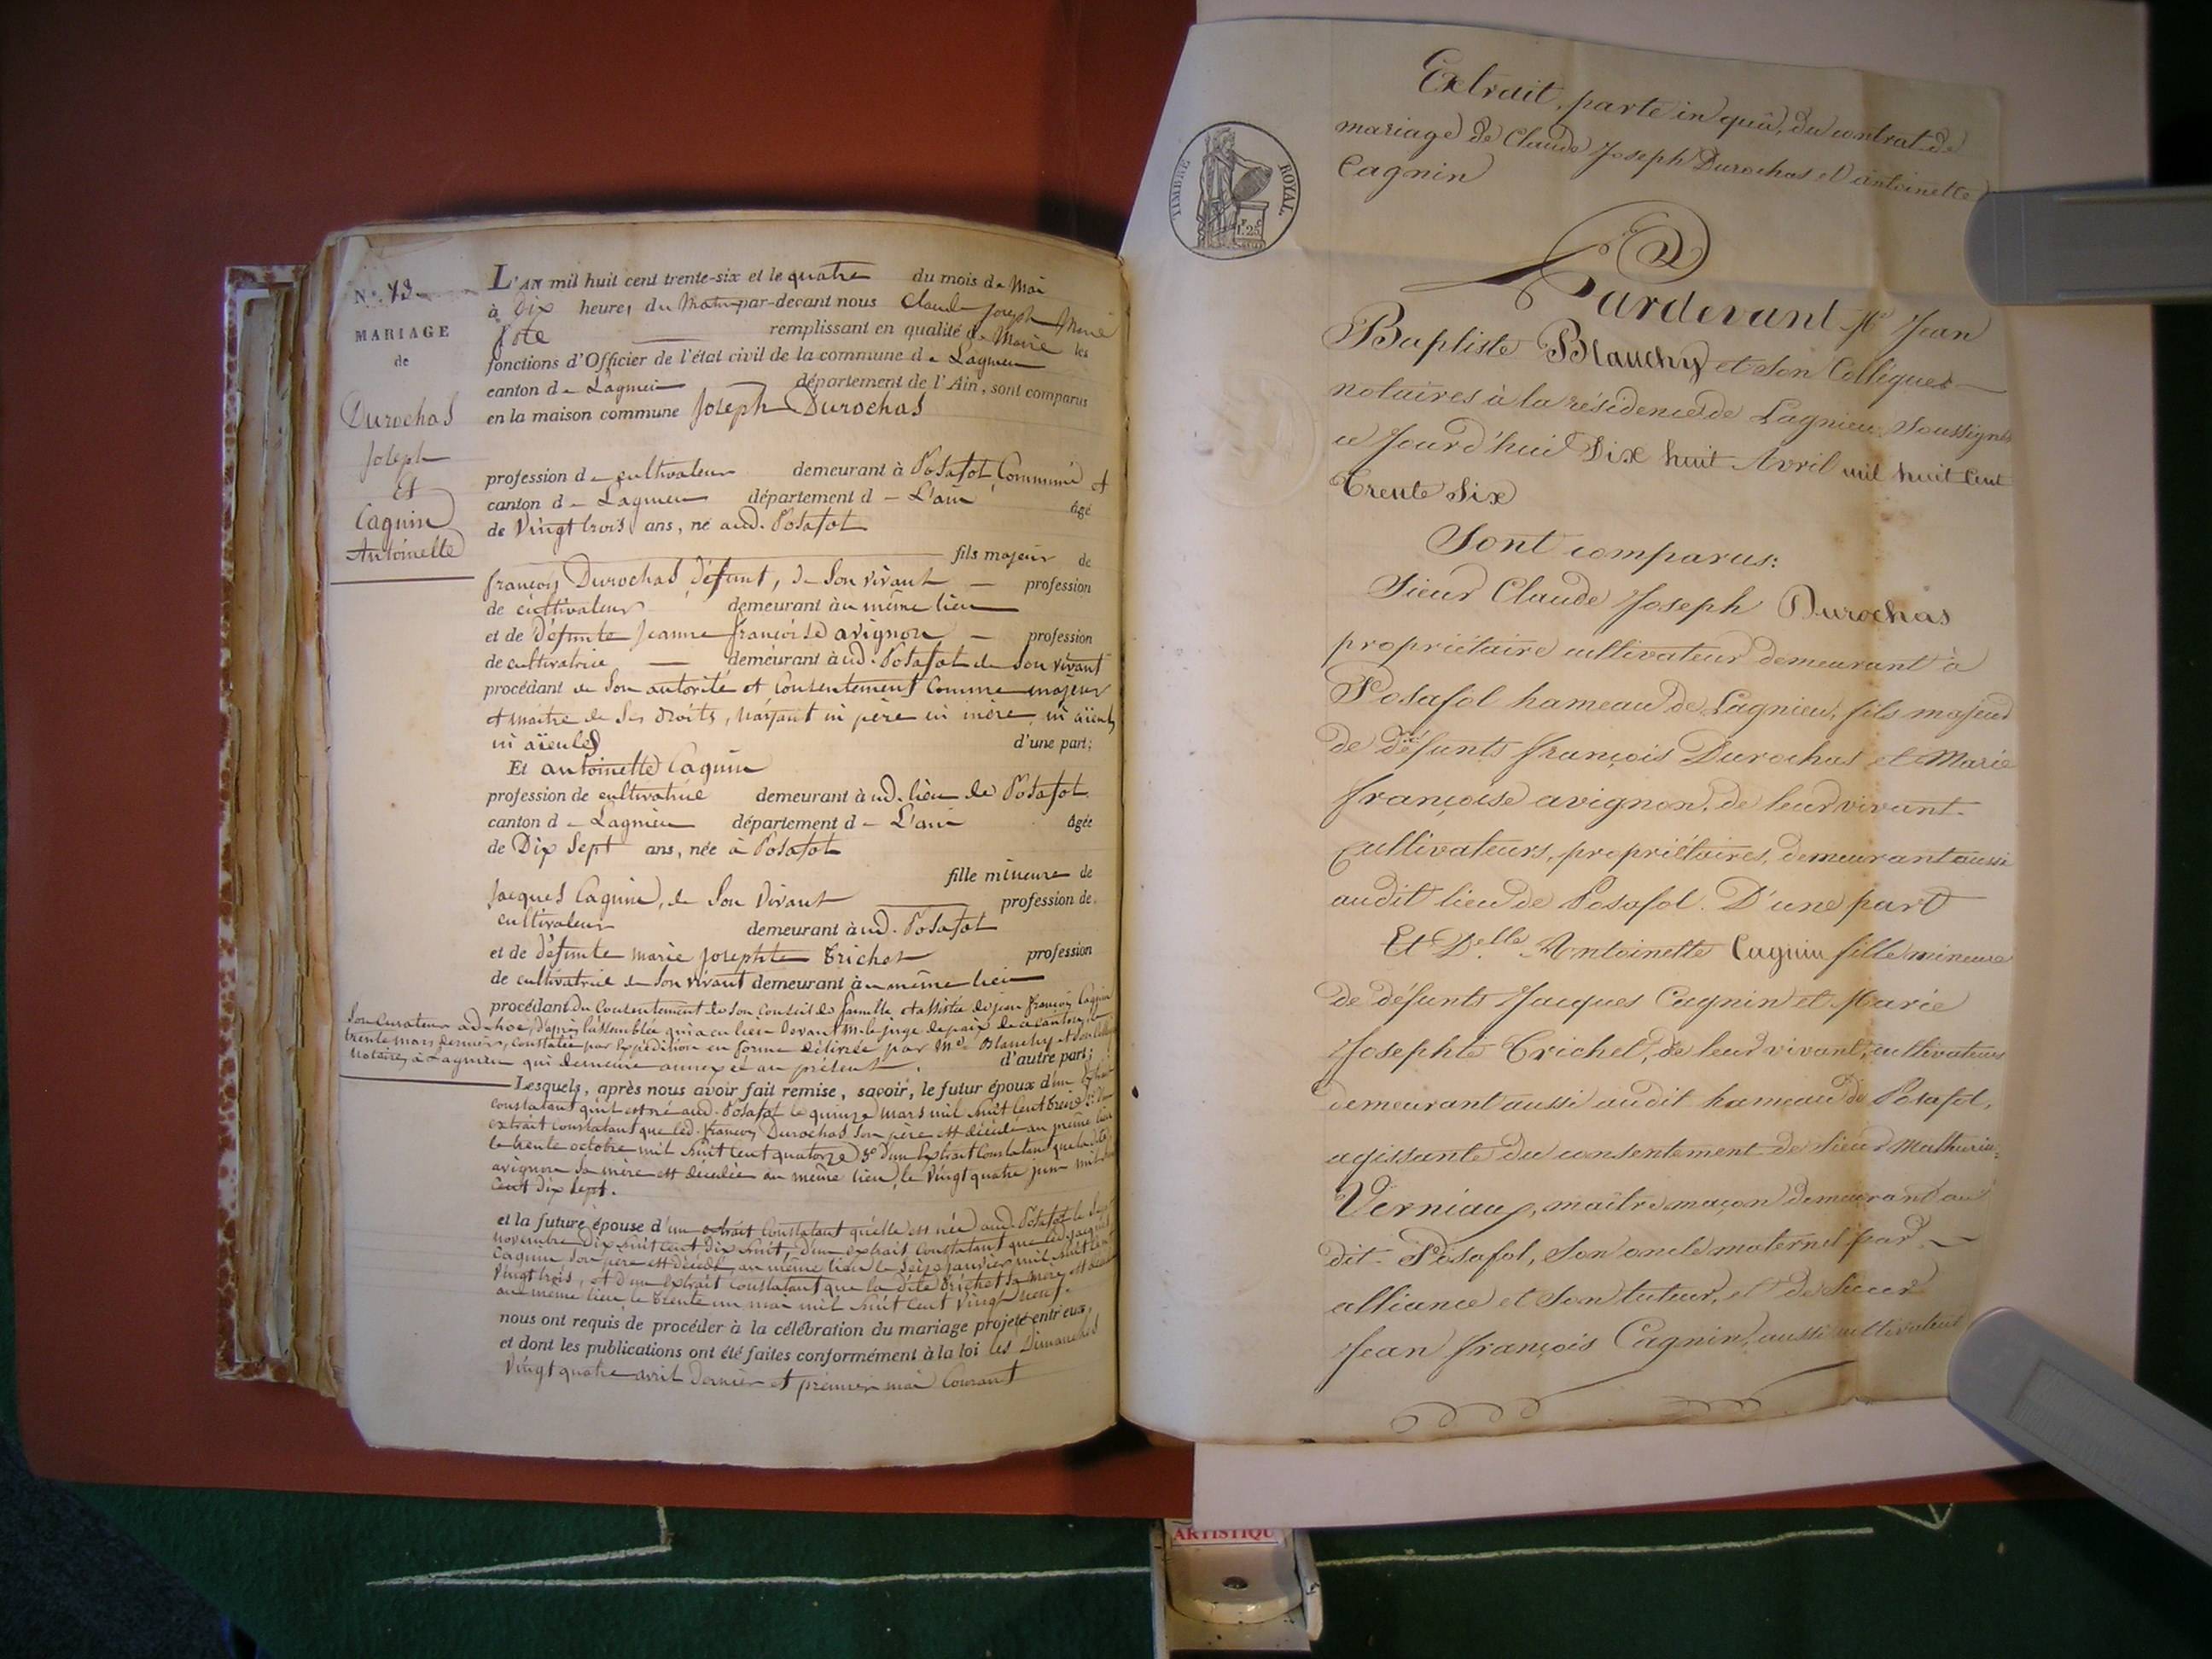 N.° 13
MARIAGE
de
Durochas
Joseph
Et
Cagnin
Antoinette
L'AN mil huit cent trente-six et le quatre du mois de Mai
à Dix heures du Matin par-devant nous Claude Joseph Mené
remplissant en qualité de Maire les
fonctions d'Officier de l'état civil de la commune de Lagnieu
canton de Lagnieu département de l'Ain, sont comparus
en la maison commune Joseph Durochas
profession de cultivateur demeurant à Posafol Commune et
canton de Lagnieu département de L'ain âgé
de Vingt trois ans, né aud. Posafol
fils majeur de
françois Durochas défunt, de Son vivant profession
de cultivateur demeurant au même lieu
et de Défunte Jeanne françoise avignon profession
de cultivatrice demeurant à ud. Posafol de Son vivant
procédant de Son autorité et Consentement Comme majeur
et maitre de Ses droits, n'ayant ni père ni mère, ni aieuls
ni aïeules d'une part;
Et antoinette Cagnin
profession de cultivatrice demeurant à ud. lieu de Posafol
canton de Lagnieu département de L'ain âgée
de Dix Sept ans, née à Posafol
fille mineure de
Jacques Cagnin, de Son Vivant profession de
cultivateur demeurant à ud. Posafol
et de défunte marie Josephte Trichet profession
de cultivatrice de Son vivant demeurant au même lieu
procédant du Consentement de Son Conseil de famille et assistée de jean françois Cagnin
Son Curateur ad hoc, d'après l'assemblée qui a eu lieu devant M. le juge de paix de ce canton, le
trente mars dernier, Constatée par Expédition en forme délivrée par Me. Blanchy et Son Collègue
Notaires à Lagnieu qui demeure annexée au présent. d'autre part;
Lesquels, après nous avoir fait remise, savoir, le futur époux d'un Extrait
constatant qu'il est né aud. Posafol le quinze mars mil huit Cent treize 2° d'un
extrait constatant que led. françois Durochas Son père est décédé au même lieu
le trente octobre mil huit Cent quatorze 3° d'un Extrait Constatant que ladite
avignon Sa mère est décédée au même lieu, le Vingt quatre juin mil huit
Cent dix Sept.
et la future épouse d'un extrait Constatant qu'elle est née aud. Posafol le Sept
novembre Dix huit cent Dix huit, d'un extrait constatant que led. jacques
Cagnin Son père est décédé au même lieu le Seize janvier mil huit cent
Vingt trois, et d'un Extrait constatant que la dite Trichet Sa mère est décédée
au même lieu le trente un mai mil huit Cent Vingt neuf.
nous ont requis de procéder à la célébration du mariage projeté entr'eux,
et dont les publications ont été faites conformément à la loi les Dimanches
Vingt quatre avril dernier et premier mai Courant
TIMBRE ROYAL
Extrait, parte in quâ, du contrat de
mariage de Claude Joseph Durochas et antoinette
Cagnin
Pardevant Me Jean
Baptiste Blanchy et Son Collègue
notaires à la résidence de Lagnieu Soussignés
ce Jourd'hui Dix huit Avril mil huit Cent
Trente Six
Sont comparus:
Sieur Claude Joseph Durochas
propriétaire cultivateur demeurant à
Posafol hameau de Lagnieu, fils majeur
de défunts françois Durochas et Marie
françoise avignon, de leur vivant
Cultivateurs, propriétaires, demeurant aussi
audit lieu de Posafol. D'une part
Et D.elle Antoinette Cagnin fille mineure
de défunts Jacques Cagnin et Marie
Josephte Trichet, de leur vivant, cultivateurs
demeurant aussi audit hameau de Posafol,
agissante du consentement de Sieur Mathurin
Verniaux, maître maçon demeurant au
dit Posafol, Son oncle maternel par
alliance et Son tuteur, et de Sieur
Jean françois Cagnin, aussi cultivateur
ARTISTIQU